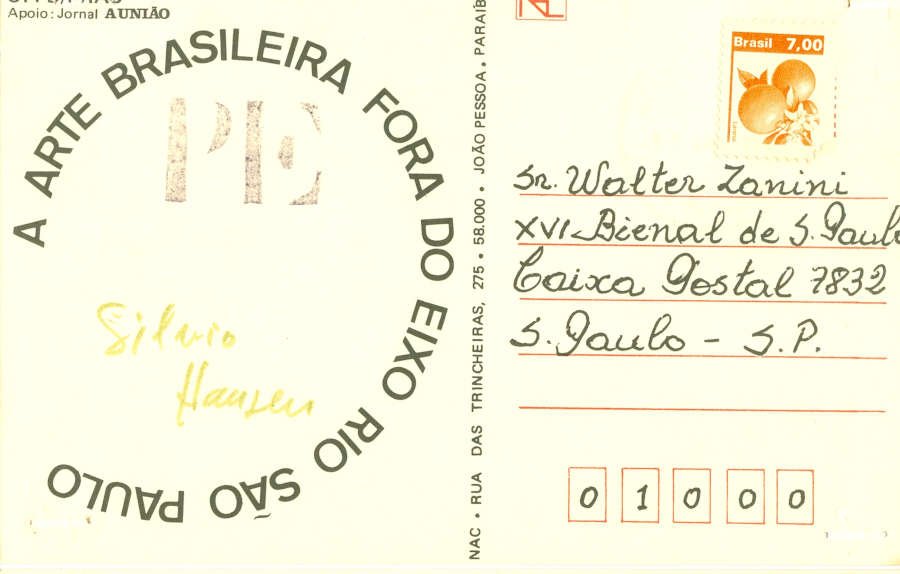 Apoio: Jornal A UNIÃO
A ARTE BRASILEIRA FORA DO EIXO RIO SÃO PAULO
PE
Silvio
Hansen
NAC • RUA DAS TRINCHEIRAS, 275 • 58.000 • JOÃO PESSOA • PARAÍB
Brasil 7,00
Sr. Walter Zanini
XVI Bienal de S. Paulo
Caixa Postal 7832
S. Paulo - S.P.
0 1 0 0 0